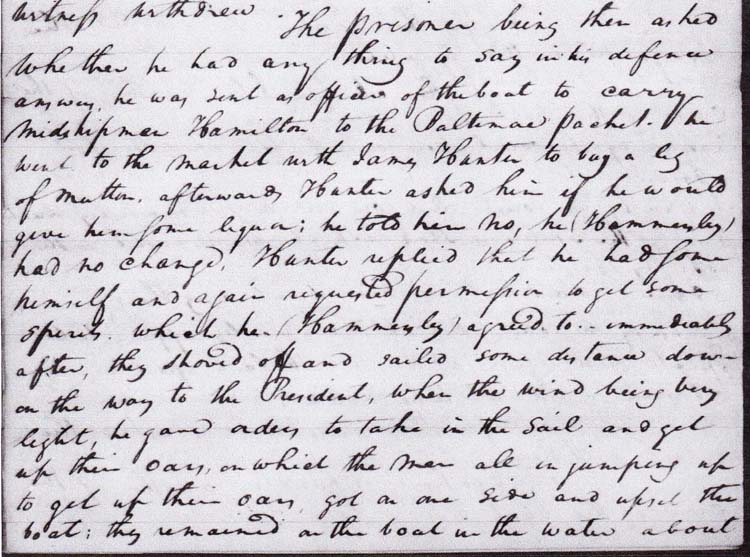 witness withdrew. The prisoner being then asked
whether he had any thing to say in his defence
answers, he was sent as officer of the boat to carry
Midshipman Hamilton to the Baltimore packet. he
went to the market with James Hunter to buy a leg
of mutton. afterwards Hunter asked him if he would
give him some liquor; he told him No, he (Hammersley)
had no change. Hunter replied that he had some
himself and again requested permission to get some
spirits which he (Hammersley) agreed to - immediately
after, they shoved off and sailed some distance down
on the way to the President, when the wind being very
light, he gave orders to take in the sail and get
up their oars, on which the men all in jumping up
to get up their oars, got on one side and upset the
boat; they remained on the boat in the water about